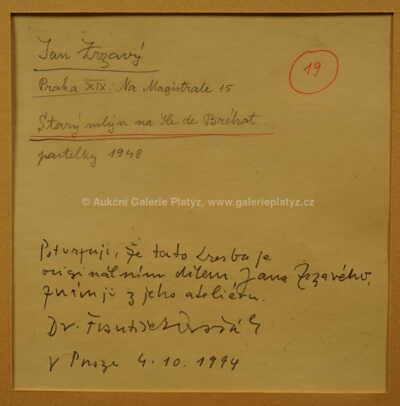 Jan Zrzavý
19
Praha XIX. Na Magistrale 15
Starý mlýn na Ile de Bréhat.
pastelky 1948
© Aukční Galerie Platýz, www.galerieplatyz.cz
Potvrzuji, že tato kresba je
originálním dílem Jana Zrzavého,
známá z jeho ateliéru.
Dr. František Dvořák
V Praze 4.10.1994